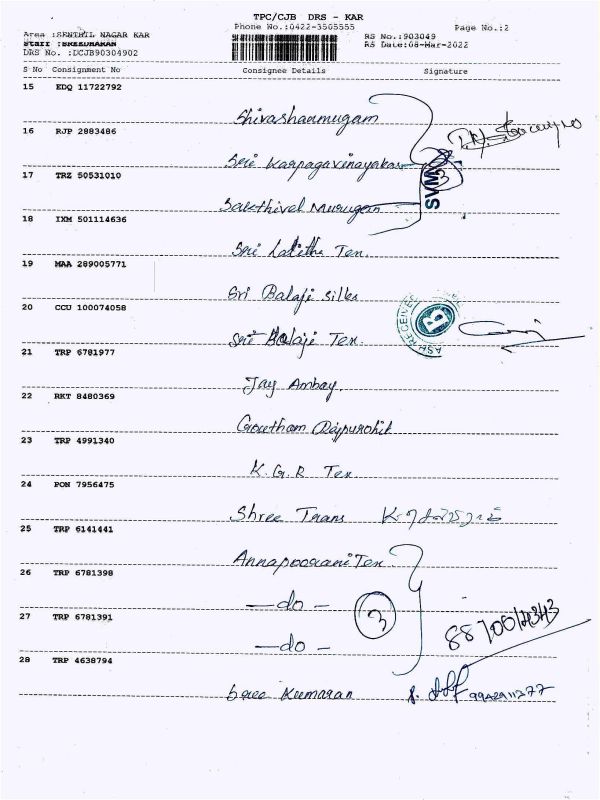 TPC/CJB DRS - KAR
Phone No.:0422-3505555
Page No.:2
Area :SENTHIL NAGAR KAR
RS No.:903049
Staff :SREEDHARAN
RS Date:08-Mar-2022
DRS No. :DCJB90304902
S No Consignment No Consignee Details Signature
15 EDQ 11722792
Shivashanmugam
16 RJP 2883486
Sri Karpagavinayakar
17 TRZ 50531010
SVM
3
Sakthivel Murugan
18 IXM 501114636
Sri Lalitha Tex.
19 MAA 289005771
Sri Balaji Silks
20 CCU 100074058
Sri Balaji Tex.
B
21 TRP 6781977
Jay Ambay.
22 RKT 8480369
Goutham Rajpurohit
23 TRP 4991340
K.G.R Tex
24 PON 7956475
Shree Trans
25 TRP 6141441
Annapoorani Tex
26 TRP 6781398
—do –
3
27 TRP 6781391
—do –
28 TRP 4638794
Sree Kumaran